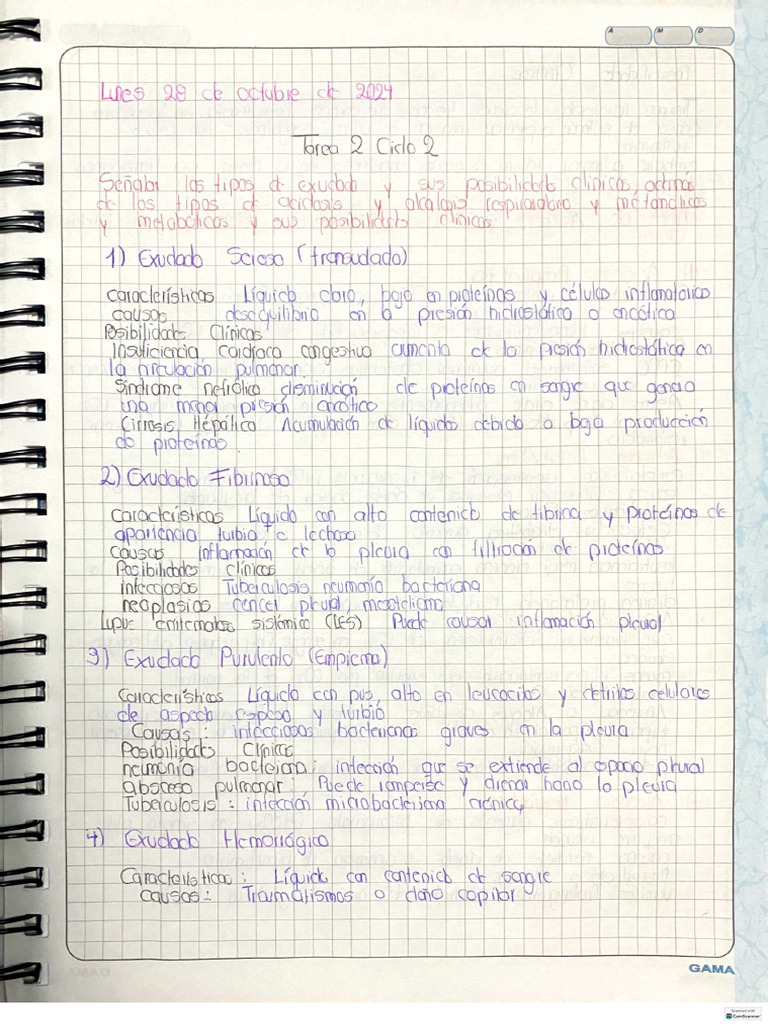 A M D
Lunes 28 de octubre de 2024
Tarea 2 Ciclo 2
Señalar los tipos de exudado y sus posibilidades clínicas, además
de los tipos de acidosis y alcalosis respiratorio y metabolicas
y metabolicas y sus posibilidades clinicas
1) Exudado Seroso (transudado)
Características Líquido claro, bajo en proteínas y células inflamatorias
causas desequilibrio en la presión hidrostática o oncótica
Posibilidades Clínicas
Insuficiencia Cardiaca congestiva aumento de la presión hidrostática en
la circulación pulmonar.
Síndrome nefrótico disminución de proteínas en sangre que genera
una menor presión oncótica
Cirrosis Hépática Acumulación de líquidos debido a baja producción
de proteínas.
2) Exudado Fibrinoso
Características Líquido con alto contenido de fibrina y proteínas de
apariencia turbia o lechosa
causas inflamación de la pleura con filtración de proteínas
Posibilidades clínicas
infecciosos Tuberculosis neumonía bacteriana
neoplasias cancer plural, mesotelioma
Lupus eritematoso sistémico (LES) Puede causar inflamación pleural
3) Exudado Purulento (Empiema)
Características Líquido con pus, alto en leucocitos y detritos celulares
de aspecto espeso y turbio
Causas: infecciosos bacterianas graves en la pleura
Posibilidades Clínicas
neumonía bacteriana: infección que se extiende al espacio plural
absceso pulmonar: Puede romperse y drenar hacia la pleura
Tuberculosis: infección microbacteriana crónica
4) Exudado Hemorrágico
Características: Líquido con contenido de sangre
causas: Traumatismos o daño capilar
GAMA
Scanned with
CamScanner